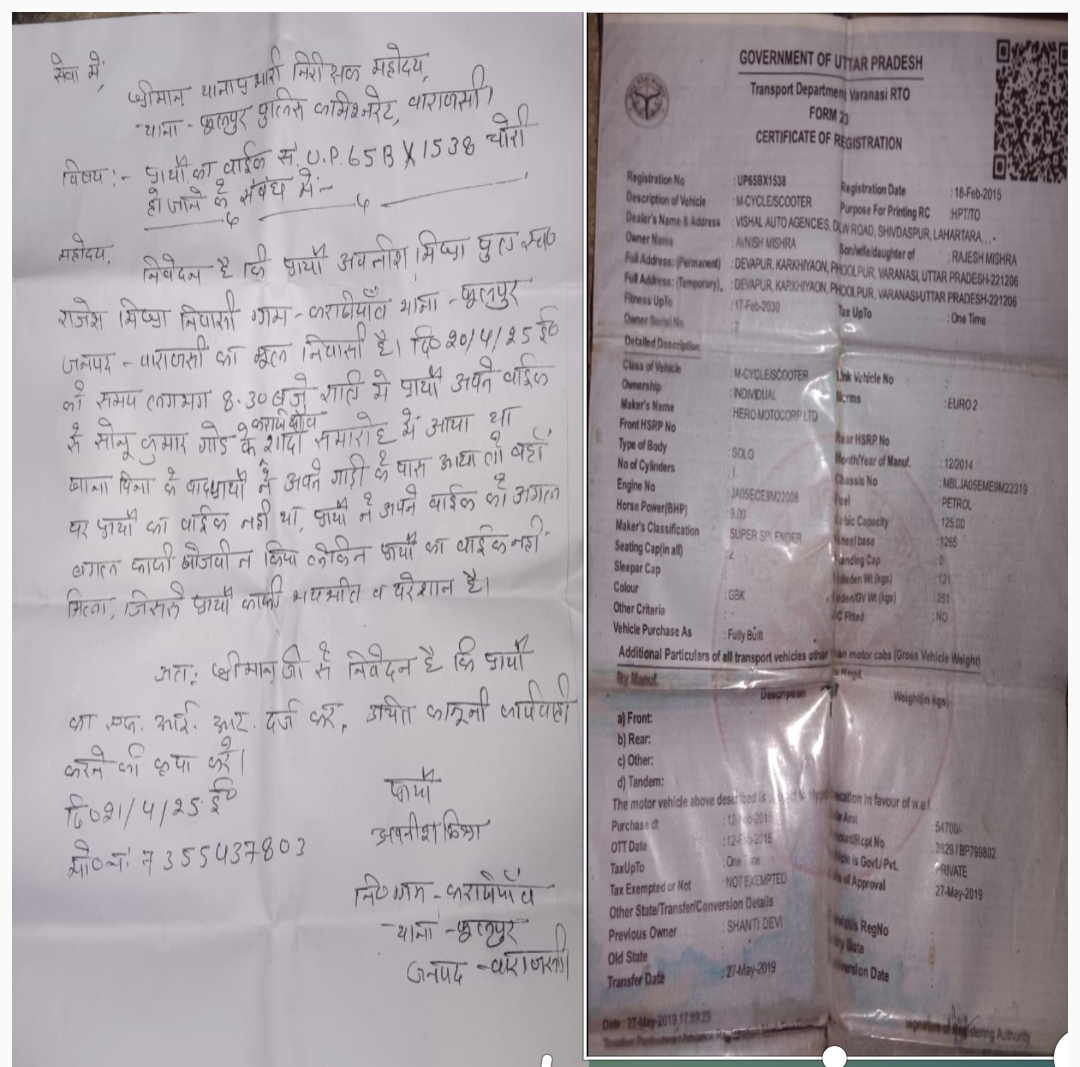 सेवा में,
श्रीमान् थानाप्रभारी निरीक्षक महोदय,
थाना - फूलपुर पुलिस कमिश्नरेट, वाराणसी।
विषय:- प्रार्थी का वाईक सं. U.P.65BX1538 चोरी
हो जाने के संबंध में:-
महोदय,
निवेदन है कि प्रार्थी अवनीश मिश्रा पुत्र स्व०
राजेश मिश्रा निवासी ग्राम - करखीयाँव थाना - फूलपुर
जनपद - वाराणसी का मूल निवासी है। दि० 20/4/25 ई०
को समय लगभग 8.30 बजे रात्रि में प्रार्थी अपने वाईक
से सोनू कुमार गोड के करखीयाँव शादी समारोह में आया था
खाना पिना के बाद प्रार्थी ने अपने गाड़ी के पास आया तो वहाँ
पर प्रार्थी का वाईक नही था, प्रार्थी ने अपने वाईक को अगल
बगल काफी खोजवीन किया लेकिन प्रार्थी का वाईक नही
मिला, जिससे प्रार्थी काफी भयभीत व परेशान है।
अतः श्रीमान् जी से निवेदन है कि प्रार्थी
का एफ. आई. आर. दर्ज कर, उचित कानूनी कार्यवाही
करने की कृपा करें।
दि० 21/4/25 ई०
मो० नं० 7355437803
प्रार्थी
अवनीश मिश्रा
नि० ग्राम - करखीयाँव
थाना - फूलपुर
जनपद - वाराणसी
GOVERNMENT OF UTTAR PRADESH
Transport Department Varanasi RTO
FORM 23
CERTIFICATE OF REGISTRATION
Registration No : UP65BX1538 Registration Date : 18-Feb-2015
Description of Vehicle : M-CYCLE/SCOOTER Purpose For Printing RC : HPT/TO
Dealer's Name & Address : VISHAL AUTO AGENCIES, DLW ROAD, SHIVDASPUR, LAHARTARA, , ,-
Owner Name : AVNISH MISHRA Son/wife/daughter of : RAJESH MISHRA
Full Address: (Permanent) : DEVAPUR, KARKHIYAON, PHOOLPUR, VARANASI, UTTAR PRADESH-221206
Full Address: (Temporary), : DEVAPUR, KARKHIYAON, PHOOLPUR, VARANASI-UTTAR PRADESH-221206
Fitness UpTo : 17-Feb-2030 Tax UpTo : One Time
Owner Serial No : 2
Detailed Description
Class of Vehicle : M-CYCLE/SCOOTER Link Vehicle No
Ownership : INDIVIDUAL Norms : EURO 2
Maker's Name : HERO MOTOCORP LTD
Front HSRP No Rear HSRP No
Type of Body : SOLO Month/Year of Manuf. : 12/2014
No of Cylinders : 1 Chassis No : MBLJA05EME9M22319
Engine No : JA05ECE9M22008 Fuel : PETROL
Horse Power(BHP) : 9.00 Cubic Capacity : 125.00
Maker's Classification : SUPER SPLENDER Wheel base : 1265
Seating Cap(in all) : 2 Standing Cap : 0
Sleepar Cap Unladen Wt (kgs) : 121
Colour : GBK Laden/GV Wt (kgs) : 251
Other Criteria : - A/C Fitted : NO
Vehicle Purchase As : Fully Built
Additional Particulars of all transport vehicles other than motor cabs (Gross Vehicle Weight)
By Manuf. Regd.
Description Weight(in kgs)
a) Front:
b) Rear:
c) Other:
d) Tandem:
The motor vehicle above described is in favour of w.e.f.
Purchase dt : 12-Feb-2015 Amt : 54700/-
OTT Date : 12-Feb-2015 Amount/Rcpt No : 3829 / BP799802
TaxUpTo : One Time Vehicle is Govt./ Pvt. : PRIVATE
Tax Exempted or Not : NOT EXEMPTED Date of Approval : 27-May-2019
Other State/Transfer/Conversion Details
Previous Owner : SHANTI DEVI Previous RegNo
Old State Entry Date
Transfer Date : 27-May-2019 Conversion Date
Date : 27-May-2019 17:59:25
Signature of Registering Authority